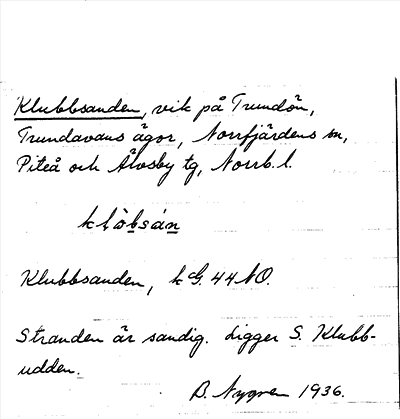 Klubbsanden, vik på Trundön,
Trundavans ägor, Norrfjärdens sn,
Piteå och Älvsby tg, Norrb. l.
klòbsán
Klubbsanden, k G. 44 NO.
Stranden är sandig. Ligger S. Klubb-
udden.
B. Nygren 1936.